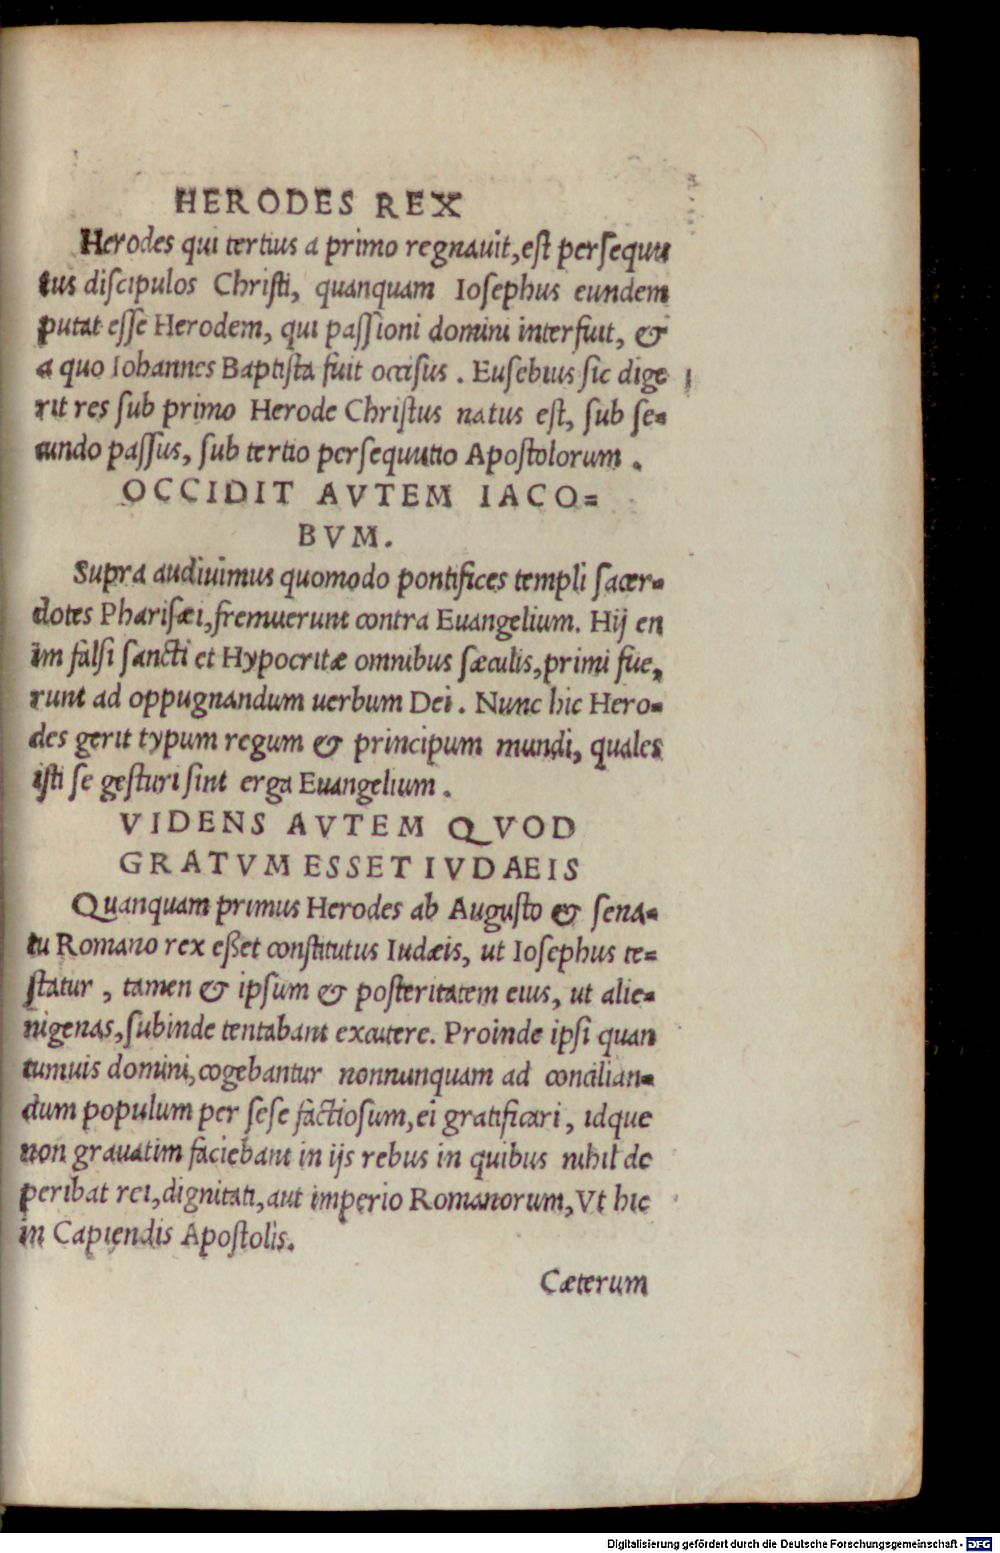 HERODES REX
Herodes qui tertius a primo regnauit, est persequu
tus discipulos Christi, quanquam Iosephus eundem
putat esse Herodem, qui passioni domini interfuit, &
a quo Iohannes Baptista fuit occisus. Eusebius sic dige
rit res sub primo Herode Christus natus est, sub se=
cundo passus, sub tertio persequutio Apostolorum.
OCCIDIT AVTEM IACO=
BVM.
Supra audiuimus quomodo pontifices templi sacer=
dotes Pharisæi, fremuerunt contra Euangelium. Hij en
im falsi sancti et Hypocritæ omnibus sæculis, primi fue,
runt ad oppugnandum uerbum Dei. Nunc hic Hero=
des gerit typum regum & principum mundi, quales
isti se gesturi sint erga Euangelium.
VIDENS AVTEM QVOD
GRATVM ESSET IVDAEIS
Quanquam primus Herodes ab Augusto & sena=
tu Romano rex eßet constitutus Iudæis, ut Iosephus te=
statur, tamen & ipsum & posteritatem eius, ut alie=
nigenas, subinde tentabant excutere. Proinde ipsi quan
tumuis domini, cogebantur nonnunquam ad concilian=
dum populum per sese factiosum, ei gratificari, idque
non grauatim faciebant in ijs rebus in quibus nihil de
peribat rei, dignitati, aut imperio Romanorum, Vt hic
in Capiendis Apostolis.
Cæterum
Digitalisierung gefördert durch die Deutsche Forschungsgemeinschaft - DFG